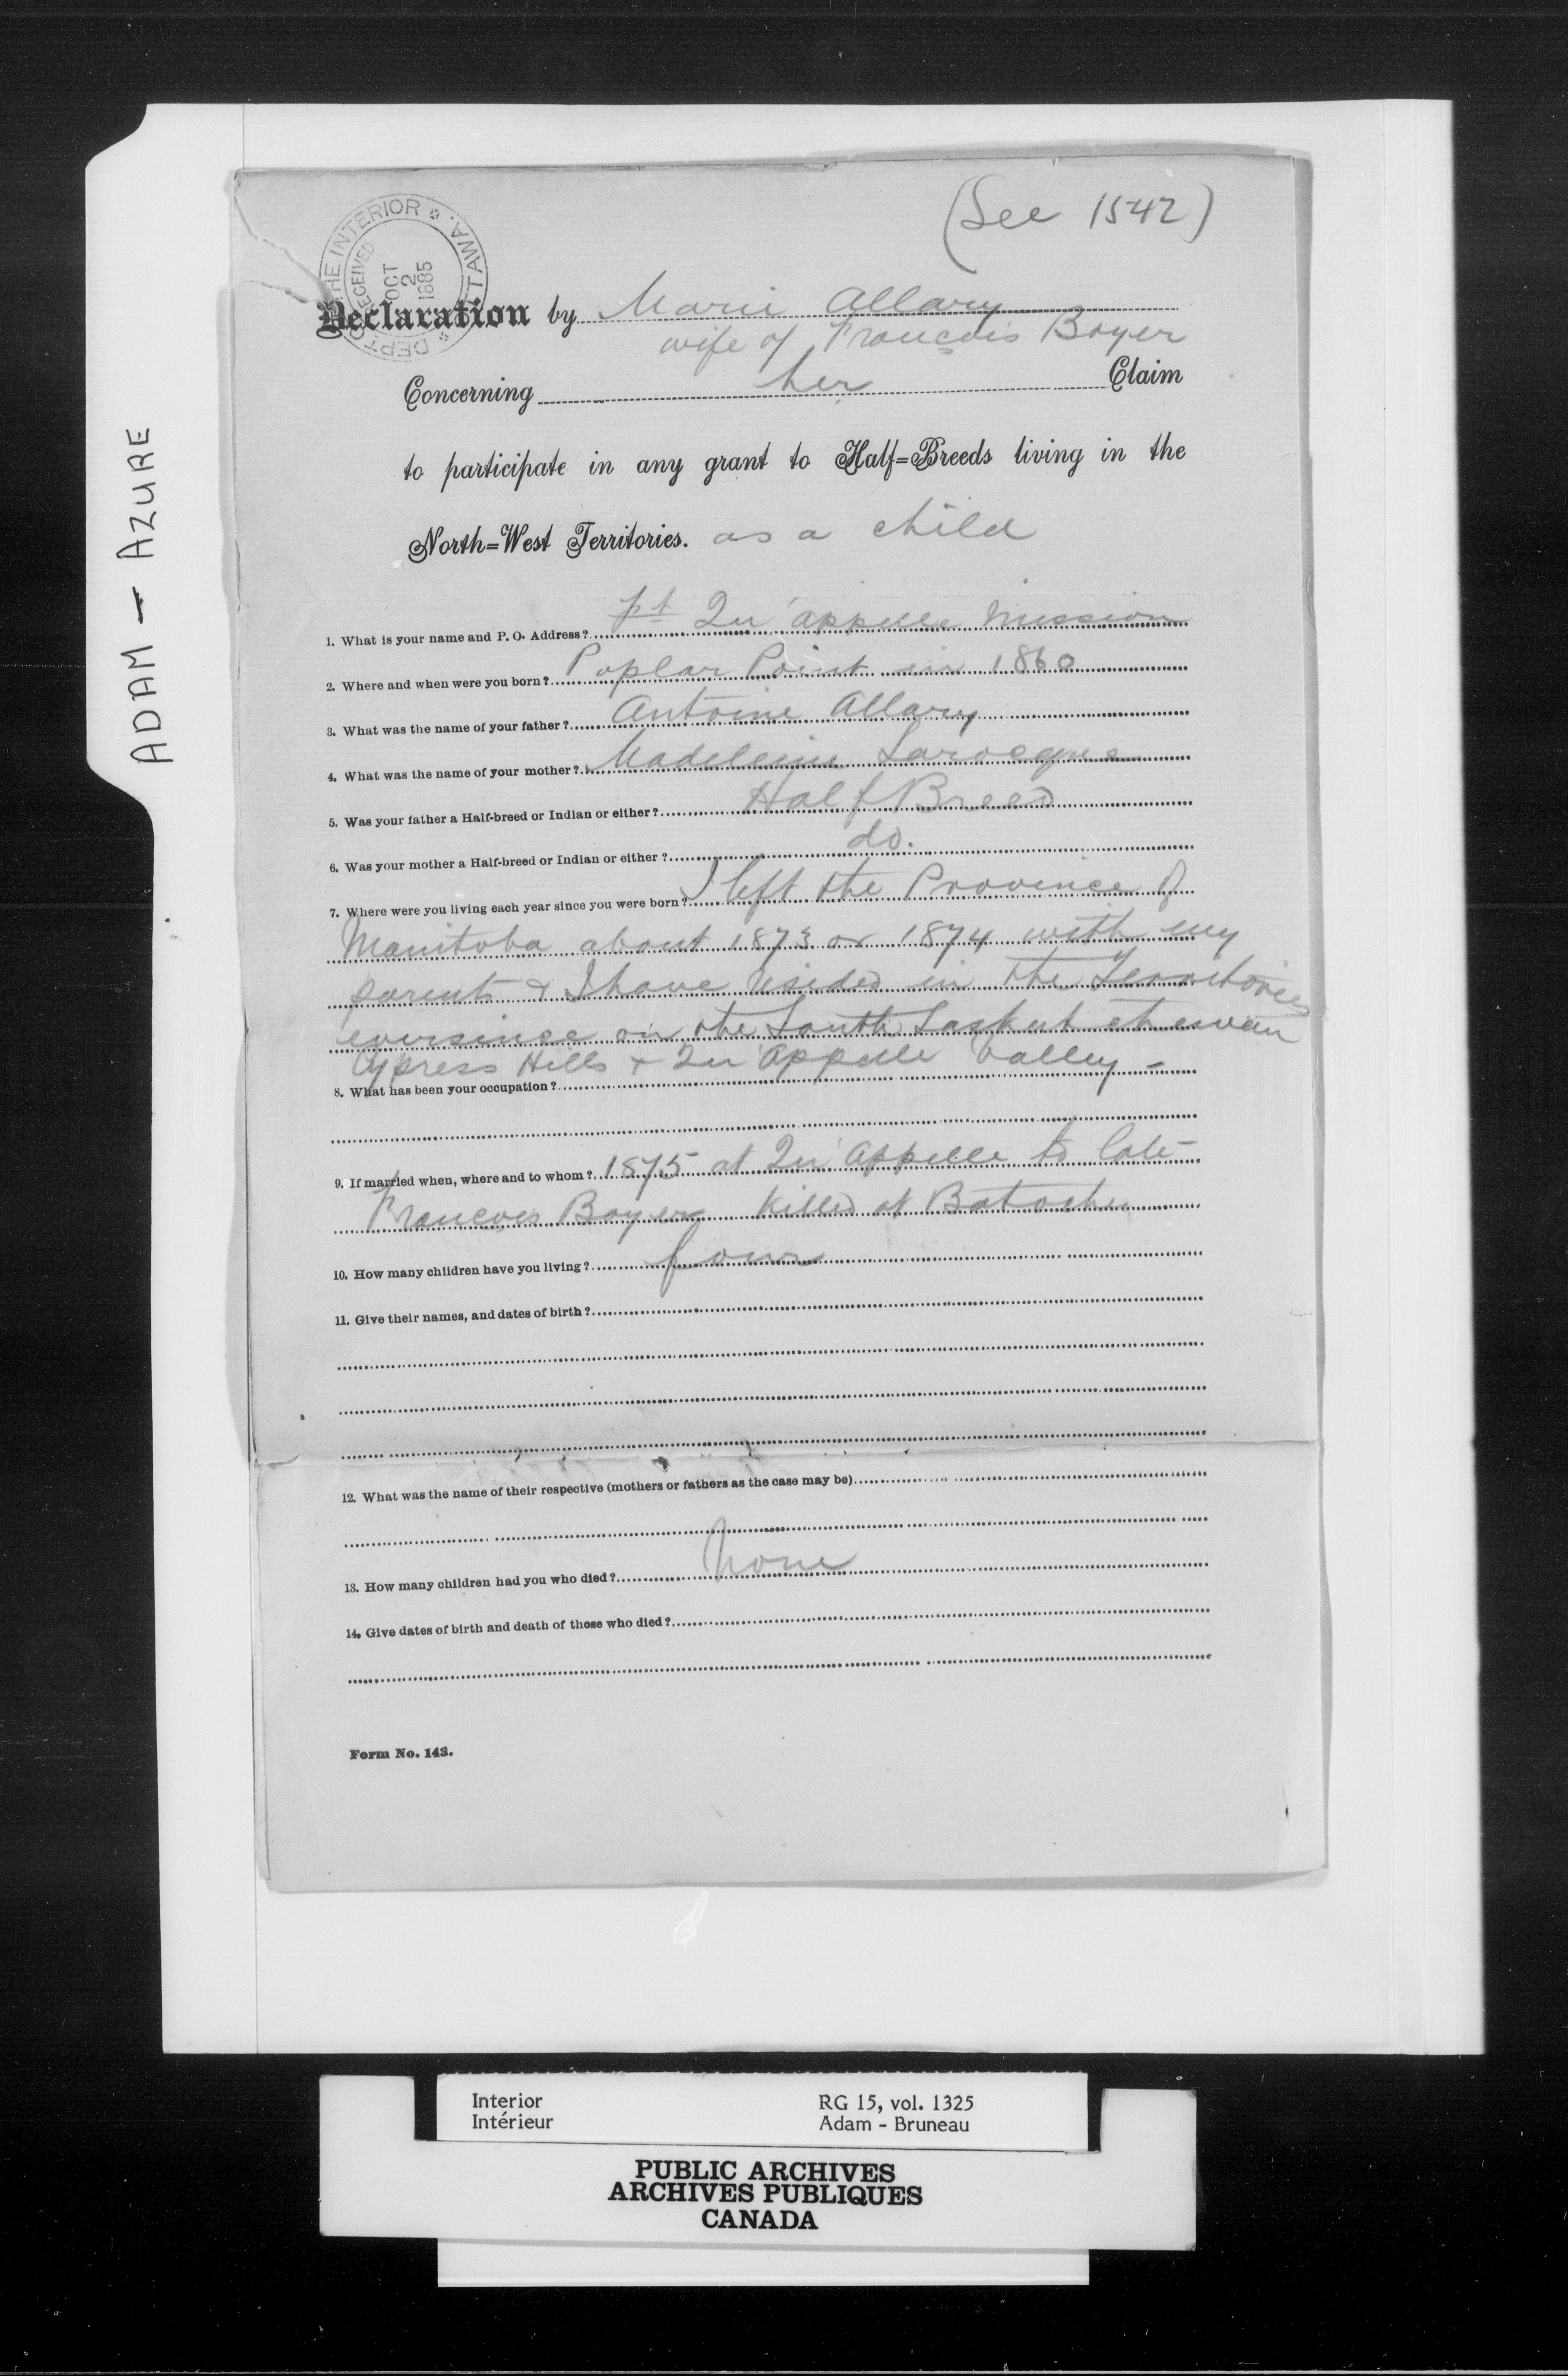 (See 1542)
DEPT OF THE INTERIOR OTTAWA.
RECEIVED
OCT
2
1885
Declaration by Marie Allary
wife of François Boyer
Concerning her Claim
to participate in any grant to Half=Breeds living in the
North=West Territories. as a child
1. What is your name and P. O. Address? Ft Qu'appelle Mission
2. Where and when were you born? Poplar Point in 1860
3. What was the name of your father? Antoine Allary
4. What was the name of your mother? Madeleine Larocque
5. Was your father a Half-breed or Indian or either? Half Breed
6. Was your mother a Half-breed or Indian or either? do.
7. Where were you living each year since you were born? I left the Province of
Manitoba about 1873 or 1874 with my
parents & I have resided in the Territories
eversince on the South Saskatchewan
Cypress Hills & Qu'Appelle Valley -
8. What has been your occupation?
9. If married when, where and to whom? 1875 at Qu'Appelle to late
Francois Boyer killed at Batoche
10. How many children have you living? four
11. Give their names, and dates of birth?
12. What was the name of their respective (mothers or fathers as the case may be)
13. How many children had you who died? None
14. Give dates of birth and death of those who died?
Form No. 143.
ADAM - AZURE
Interior RG 15, vol. 1325
Intérieur Adam - Bruneau
PUBLIC ARCHIVES
ARCHIVES PUBLIQUES
CANADA